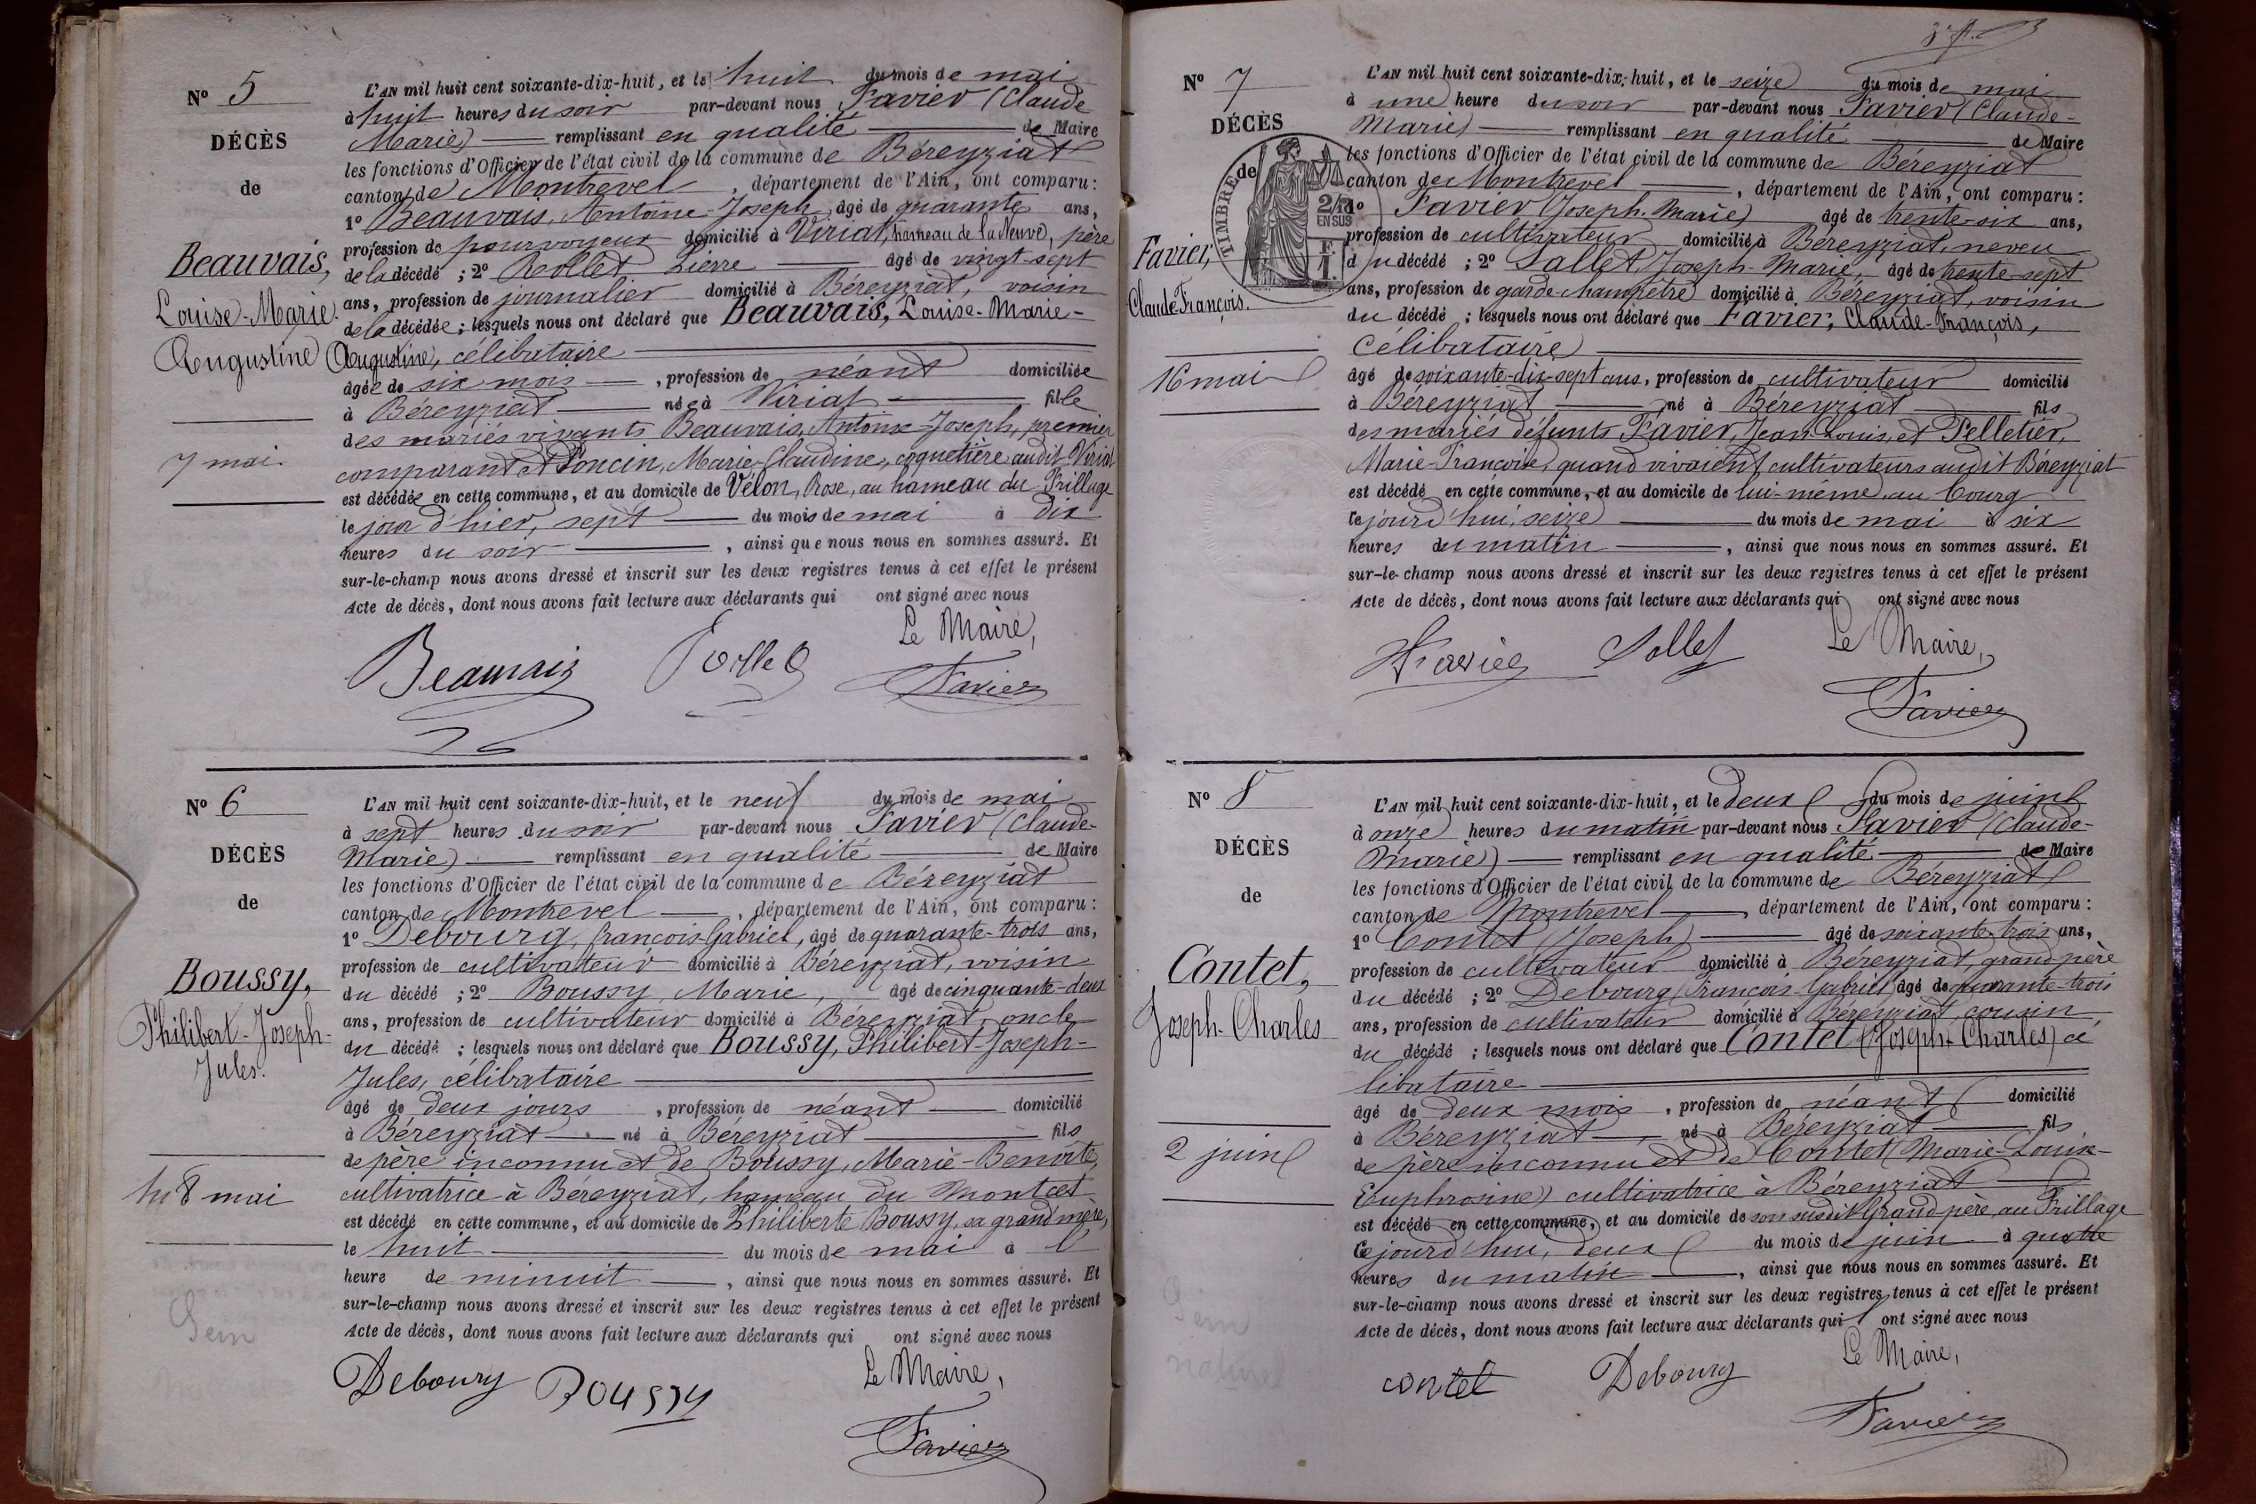 N° 5
DÉCÈS
de
Beauvais,
Louise-Marie
Augustine
7 mai
L'AN mil huit cent soixante-dix-huit, et le huit du mois de mai
à huit heures du soir par-devant nous Favier (Claude-
Marie) remplissant en qualité de Maire
les fonctions d'Officier de l'état civil de la commune de Béreyziat
canton de Montrevel, département de l'Ain, ont comparu :
1° Beauvais, Antoine-Joseph, âgé de quarante ans,
profession de pourvoyeur domicilié à Viriat, hameau de la Neuve, père
de la décédé ; 2° Rollet, Pierre âgé de vingt-sept
ans, profession de journalier domicilié à Béreyziat, voisin
de la décédée ; lesquels nous ont déclaré que Beauvais, Louise-Marie-
Augustine, célibataire
âgée de six mois, profession de néant domiciliée
à Béreyziat née à Viriat fille
des mariés vivants Beauvais, Antoine-Joseph, premier
comparant et Poncin, Marie-Claudine, coquetière audit Viriat
est décédée en cette commune, et au domicile de Vélon, Rose, au hameau du Frillage
le jour d'hier, sept du mois de mai à dix
heures du soir, ainsi que nous nous en sommes assuré. Et
sur-le-champ nous avons dressé et inscrit sur les deux registres tenus à cet effet le présent
Acte de décès, dont nous avons fait lecture aux déclarants qui ont signé avec nous
Le Maire,
Beauvais Rollet Favier
N° 6
DÉCÈS
de
Boussy,
Philibert-Joseph-
Jules.
8 mai
L'AN mil huit cent soixante-dix-huit, et le neuf du mois de mai
à sept heures du soir par-devant nous Favier (Claude-
Marie) remplissant en qualité de Maire
les fonctions d'Officier de l'état civil de la commune de Béreyziat
canton de Montrevel, département de l'Ain, ont comparu :
1° Debourg, François-Gabriel, âgé de quarante-trois ans,
profession de cultivateur domicilié à Béreyziat, voisin
du décédé ; 2° Boussy, Marie, âgé de cinquante-deux
ans, profession de cultivateur domicilié à Béreyziat, oncle
du décédé ; lesquels nous ont déclaré que Boussy, Philibert-Joseph-
Jules, célibataire
âgé de deux jours, profession de néant domicilié
à Béreyziat né à Béreyziat fils
de père inconnu et de Boussy, Marie-Benoite,
cultivatrice à Béreyziat, hameau du Montcet
est décédé en cette commune, et au domicile de Philiberte Boussy, sa grand'mère,
le huit du mois de mai à l'
heure de minuit, ainsi que nous nous en sommes assuré. Et
sur-le-champ nous avons dressé et inscrit sur les deux registres tenus à cet effet le présent
Acte de décès, dont nous avons fait lecture aux déclarants qui ont signé avec nous
Le Maire,
Debourg BOUSSY
Favier
N° 7
DÉCÈS
de
TIMBRE
2/10
EN SUS
Favier,
Claude-François.
16 mai
L'AN mil huit cent soixante-dix-huit, et le seize du mois de mai
à une heure du soir par-devant nous Favier (Claude-
Marie) remplissant en qualité de Maire
les fonctions d'Officier de l'état civil de la commune de Béreyziat
canton de Montrevel, département de l'Ain, ont comparu :
1° Favier (Joseph-Marie) âgé de trente-six ans,
profession de cultivateur domicilié à Béreyziat, neveu
du décédé ; 2° Sallet, Joseph-Marie, âgé de trente-sept
ans, profession de garde-champêtre domicilié à Béreyziat, voisin
du décédé ; lesquels nous ont déclaré que Favier, Claude-François,
célibataire
âgé de soixante-dix-sept ans, profession de cultivateur domicilié
à Béreyziat né à Béreyziat fils
des mariés défunts Favier, Jean-Louis, et Pelletier,
Marie-Françoise, quand vivaient cultivateurs audit Béreyziat
est décédé en cette commune, et au domicile de lui-même, au bourg
cejourd'hui, seize du mois de mai à six
heures du matin, ainsi que nous nous en sommes assuré. Et
sur-le-champ nous avons dressé et inscrit sur les deux registres tenus à cet effet le présent
Acte de décès, dont nous avons fait lecture aux déclarants qui ont signé avec nous
Favier Sallet Le Maire,
Favier
N° 8
DÉCÈS
de
Contet,
Joseph-Charles
2 juin
L'AN mil huit cent soixante-dix-huit, et le deux du mois de juin
à onze heures du matin par-devant nous Favier (Claude-
Marie) remplissant en qualité de Maire
les fonctions d'Officier de l'état civil de la commune de Béreyziat
canton de Montrevel, département de l'Ain, ont comparu :
1° Contet (Joseph) âgé de soixante-trois ans,
profession de cultivateur domicilié à Béreyziat, grand père
du décédé ; 2° Debourg (François-Gabriel) âgé de quarante-trois
ans, profession de cultivateur domicilié à Béreyziat, cousin
du décédé ; lesquels nous ont déclaré que Contet (Joseph-Charles) cé
libataire
âgé de deux mois, profession de néant domicilié
à Béreyziat né à Béreyziat fils
de père inconnu et de Contet (Marie-Louise-
Euphrosine) cultivatrice à Béreyziat
est décédé en cette commune, et au domicile de son susdit Grand père, au Frillage
Cejourd'hui, deux du mois de juin à quatre
heures du matin, ainsi que nous nous en sommes assuré. Et
sur-le-champ nous avons dressé et inscrit sur les deux registres tenus à cet effet le présent
Acte de décès, dont nous avons fait lecture aux déclarants qui ont signé avec nous
Le Maire,
contet Debourg
Favier